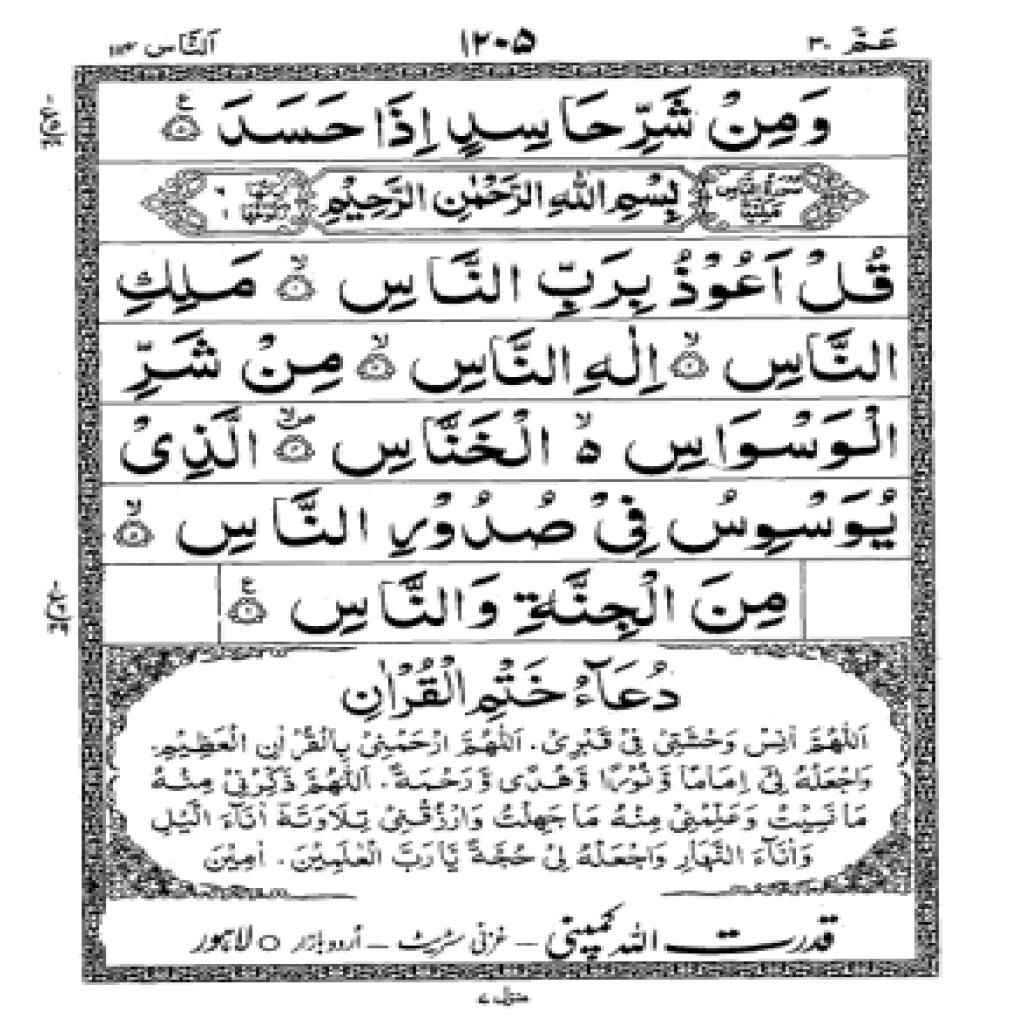 عَمَّ ٣٠
١٢٠٥
اَلنَّاس ١١٤
وَمِنْ شَرِّ حَاسِدٍ اِذَا حَسَدَ ۵
سُوْرَةُ النَّاسِ مَكِّيَّةٌ
بِسْمِ اللّٰهِ الرَّحْمٰنِ الرَّحِيْمِ
قُلْ اَعُوْذُ بِرَبِّ النَّاسِ ۙ۱ مَلِكِ
النَّاسِ ۙ۲ اِلٰهِ النَّاسِ ۙ۳ مِنْ شَرِّ
الْوَسْوَاسِ ۵ۙ الْخَنَّاسِ ۴ الَّذِىْ
يُوَسْوِسُ فِىْ صُدُوْرِ النَّاسِ ۙ۵
مِنَ الْجِنَّةِ وَالنَّاسِ ۶
دُعَآءُ خَتْمِ الْقُرْاٰنِ
اَللّٰهُمَّ اٰنِسْ وَحْشَتِىْ فِىْ قَبْرِىْ. اَللّٰهُمَّ ارْحَمْنِىْ بِالْقُرْاٰنِ الْعَظِيْمِ.
وَاجْعَلْهُ لِىْ اِمَامًا وَّ نُوْرًا وَّ هُدًى وَّ رَحْمَةً. اَللّٰهُمَّ ذَكِّرْنِىْ مِنْهُ
مَا نَسِيْتُ وَعَلِّمْنِىْ مِنْهُ مَا جَهِلْتُ وَارْزُقْنِىْ تِلَاوَتَهٗ اٰنَآءَ الَّيْلِ
وَاٰنَآءَ النَّهَارِ وَاجْعَلْهُ لِىْ حُجَّةً يَّا رَبَّ الْعٰلَمِيْنَ. اٰمِيْن
قدرت اللہ کمپنی – غزنی سٹریٹ – اُردو بازار ○ لاہور
منزل ۷